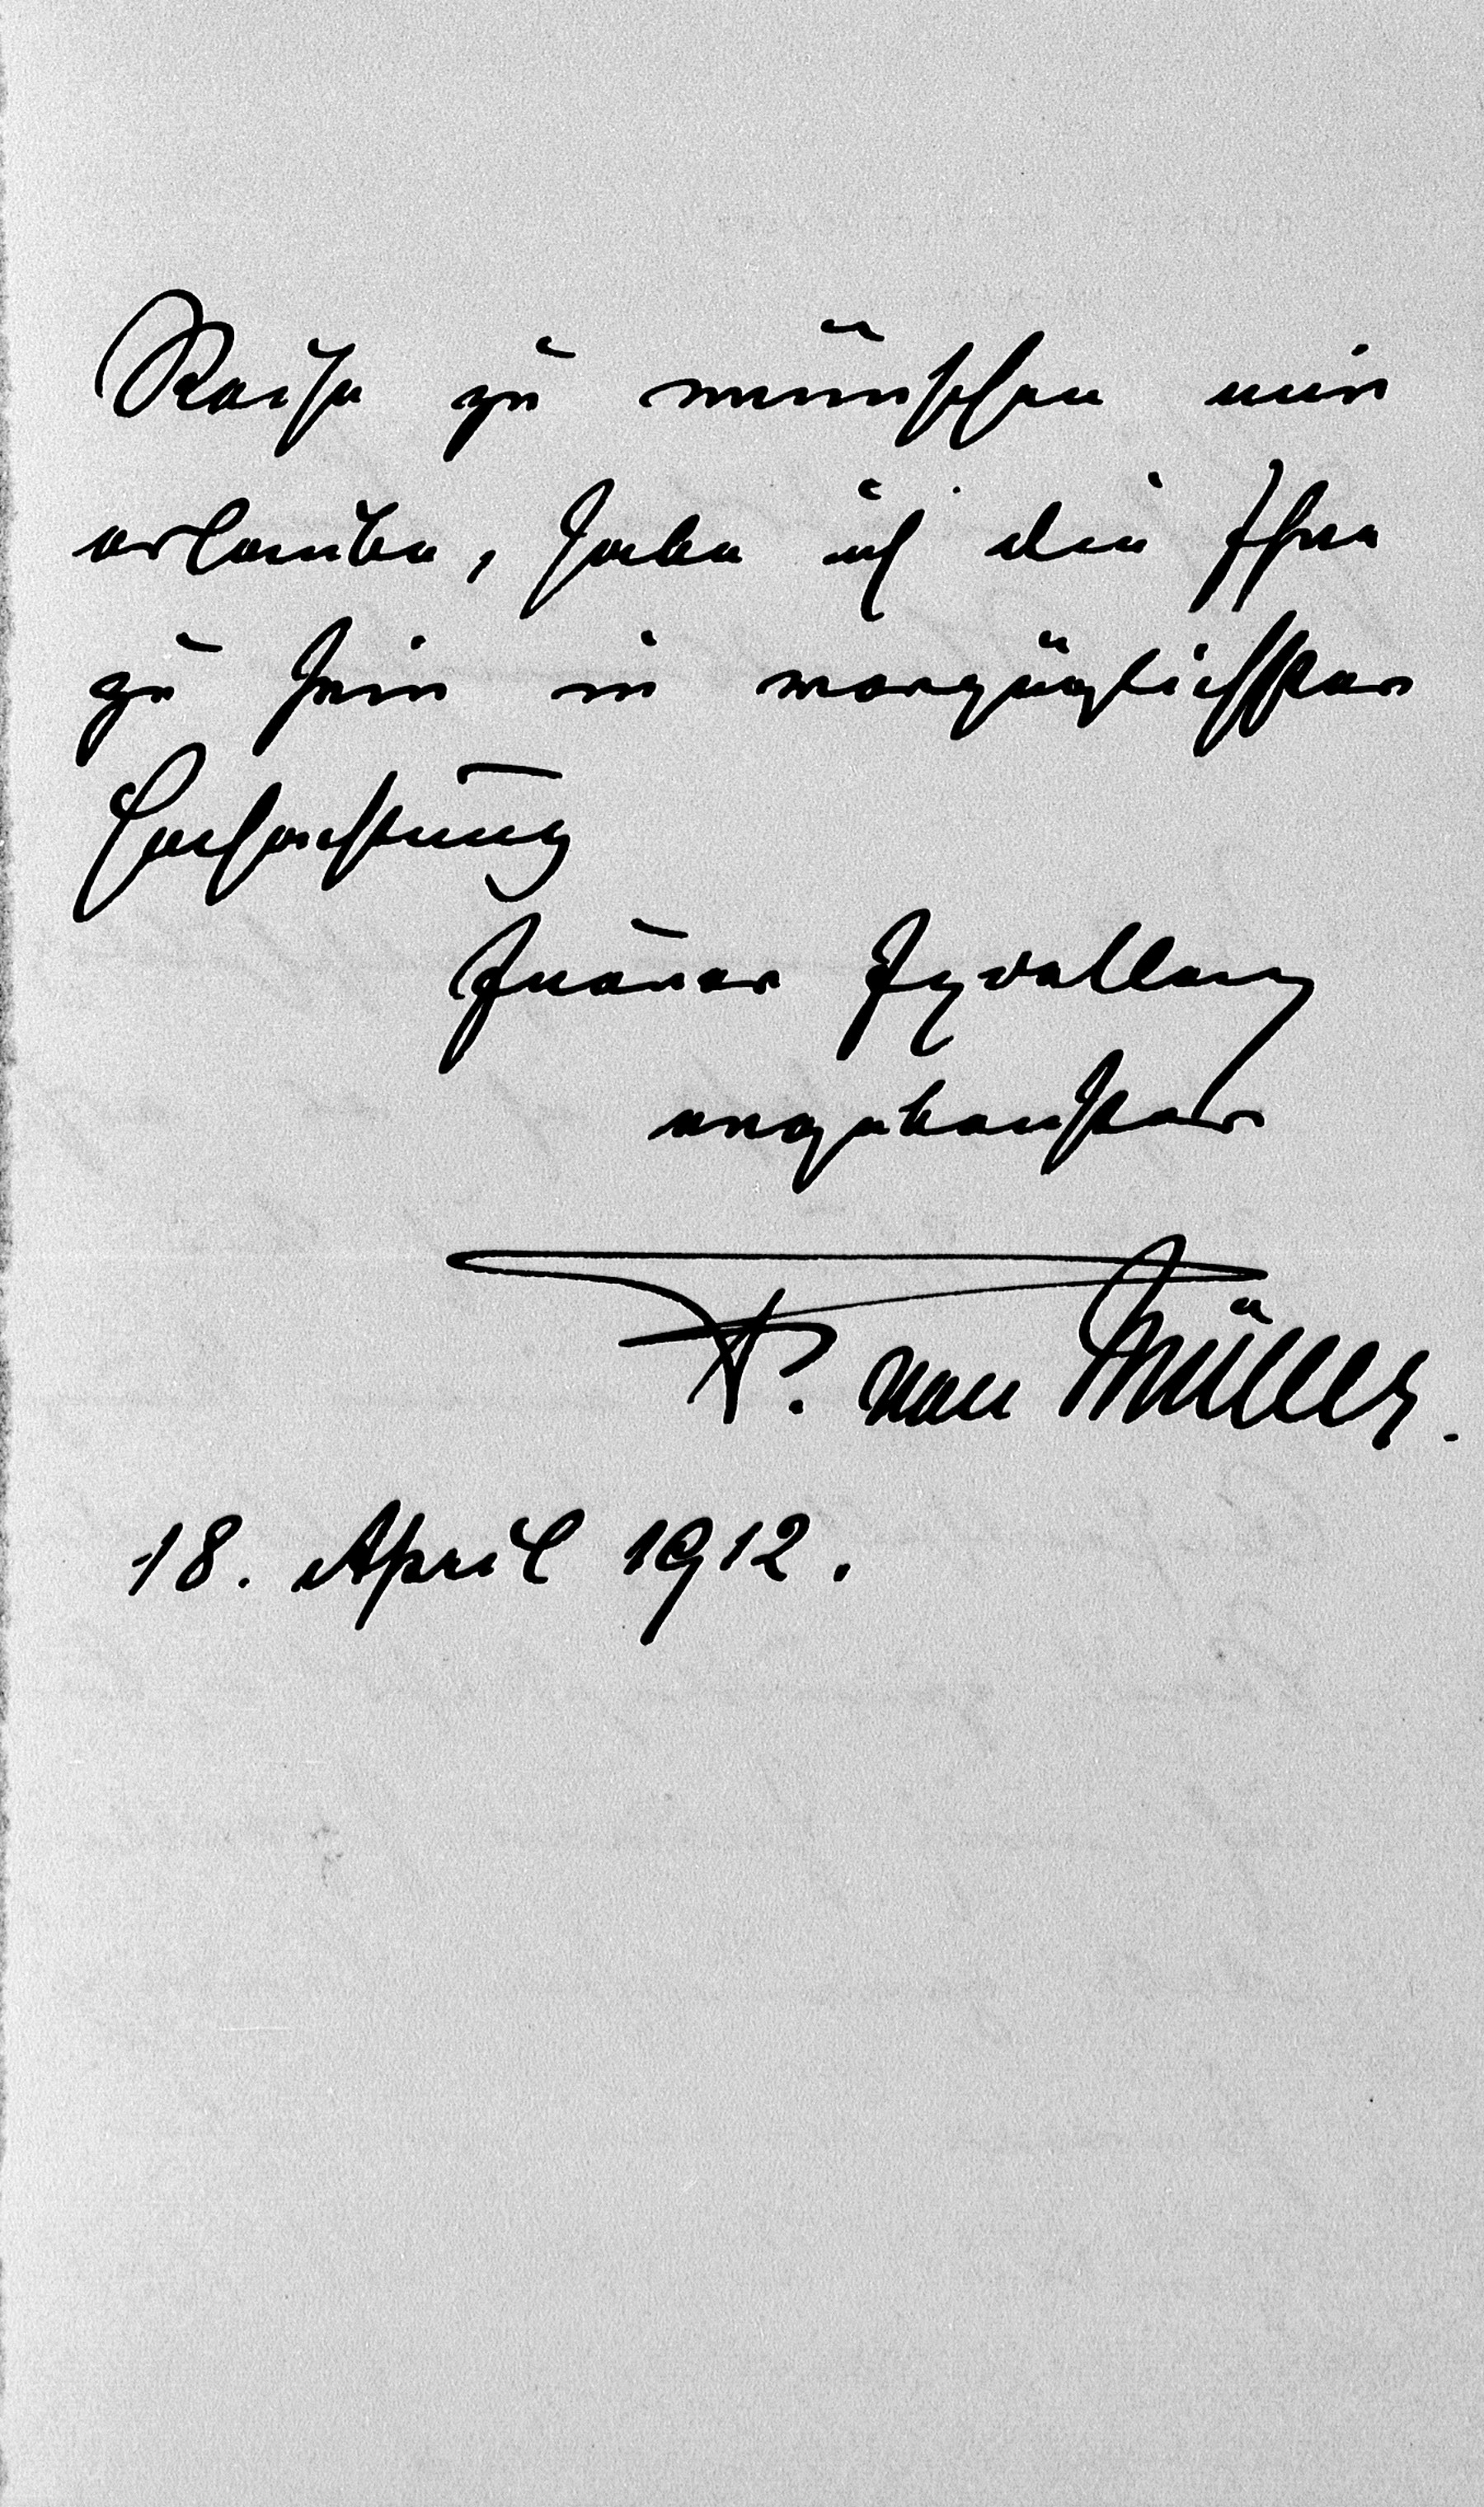 Reise zu wünschen mir
erlaube, habe ich die Ehre
zu sein in vorzüglichster
Hochachtung
Euerer Exzellenz
ergebenster
P. von Müller.
18. April 1912.